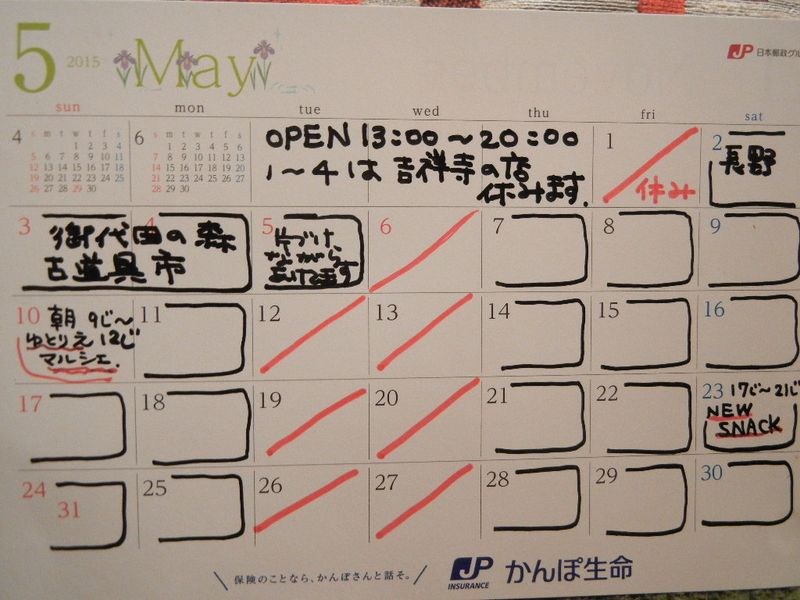 5 2015 May
JP 日本郵政グル
sun mon tue wed thu fri sat
4 s m t w t f s
1 2 3 4
5 6 7 8 9 10 11
12 13 14 15 16 17 18
19 20 21 22 23 24 25
26 27 28 29 30
6 s m t w t f s
1 2 3 4 5 6
7 8 9 10 11 12 13
14 15 16 17 18 19 20
21 22 23 24 25 26 27
28 29 30
OPEN 13:00〜20:00
1〜4は吉祥寺の店
休みます.
1
休み
2
長野
3 4
御代田の森
古道具市
5
片づけ
ながら
あけてます
6 7 8 9
10 朝 9じ〜
ゆとりえ 12じ
マルシェ.
11 12 13 14 15 16
17 18 19 20 21 22
23 17じ〜21じ
NEW
SNACK
24 31 25 26 27 28 29 30
保険のことなら、かんぽさんと話そ。
JP INSURANCE かんぽ生命